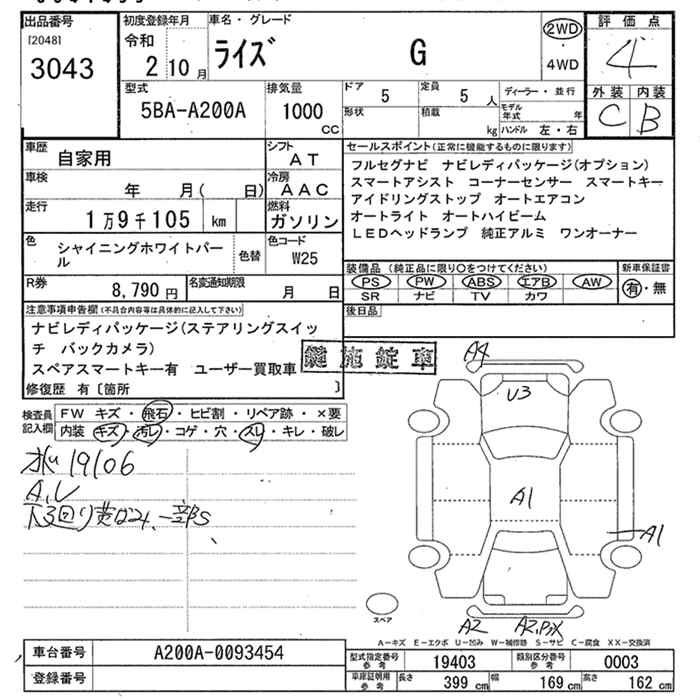 出品番号
[2048]
3043
初度登録年月
令和
2 10月
車名・グレード
ライズ G
2WD
・
4WD
評価点
4
外装 内装
C B
型式
5BA-A200A
排気量
1000
CC
ドア 5
定員 5 人
形状
積載 kg
ディーラー・並行
モデル年式 年
ハンドル 左・右
車歴
自家用
シフト
AT
車検
年 月( 日)
冷房
AAC
走行
1万9千105 km
燃料
ガソリン
色
シャイニングホワイトパール
色替
色コード
W25
R券
8,790 円
名変通知期限
月 日
セールスポイント(正常に機能するものに限ります)
フルセグナビ ナビレディパッケージ(オプション)
スマートアシスト コーナーセンサー スマートキー
アイドリングストップ オートエアコン
オートライト オートハイビーム
LEDヘッドランプ 純正アルミ ワンオーナー
装備品(純正品に限り○をつけてください)
新車保証書
PS PW ABS エアB AW
有・無
SR ナビ TV カワ
後日品
注意事項申告欄(不具合内容等は具体的に記入して下さい)
ナビレディパッケージ(ステアリングスイッ
チ バックカメラ)
スペアスマートキー有 ユーザー買取車
修復歴 有〔箇所 〕
鍵施錠車
検査員
記入欄
FW キズ・飛石・ヒビ割・リペア跡・×要
内装 キズ・汚レ・コゲ・穴・スレ・キレ・破レ
19106
A.U
下回り
一部S
A4
U3
A1
A1
A2
A2
スペア
A-キズ E-エクボ U-凹み W-補修跡 S-サビ C-腐食 XX-交換済
車台番号
A200A-0093454
登録番号
型式指定番号
参考
19403
類別区分番号
参考
0003
車庫証明用
参考
長さ 399 cm
幅 169 cm
高さ 162 cm